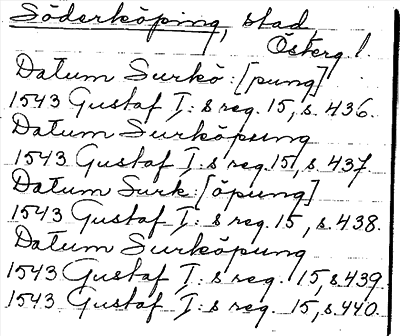 Söderköping, stad
Österg. l.
Datum Surkö:[pung]
1543 Gustaf I:s reg. 15, s. 436.
Datum Surköpung
1543 Gustaf I:s reg. 15, s. 437.
Datum Surk:[öpung]
1543 Gustaf I:s reg. 15, s. 438.
Datum Surköpung
1543 Gustaf I:s reg. 15, s. 439
1543 Gustaf I:s reg. 15, s. 440.